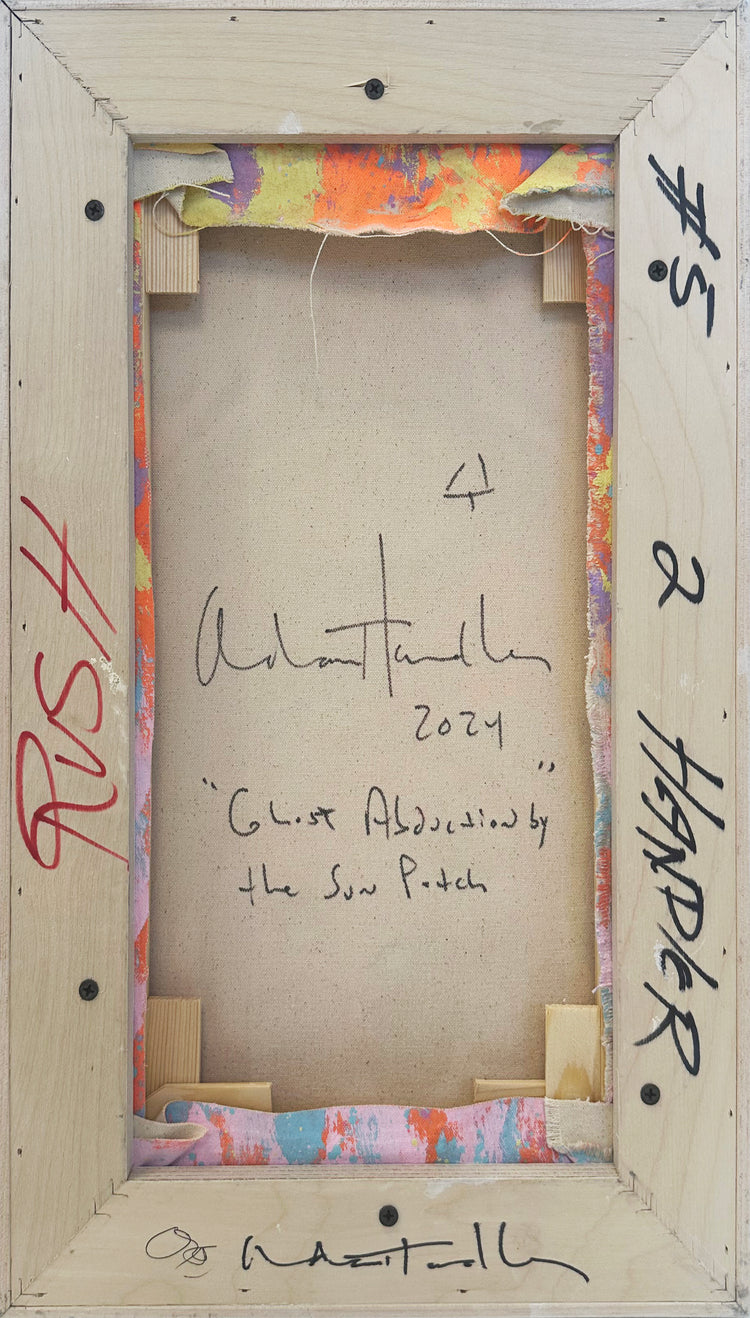 #5 2 HANDLER
RUSH
Adam Handler
2024
"Ghost Abduction by"
the Sun Patch
Adam Handler